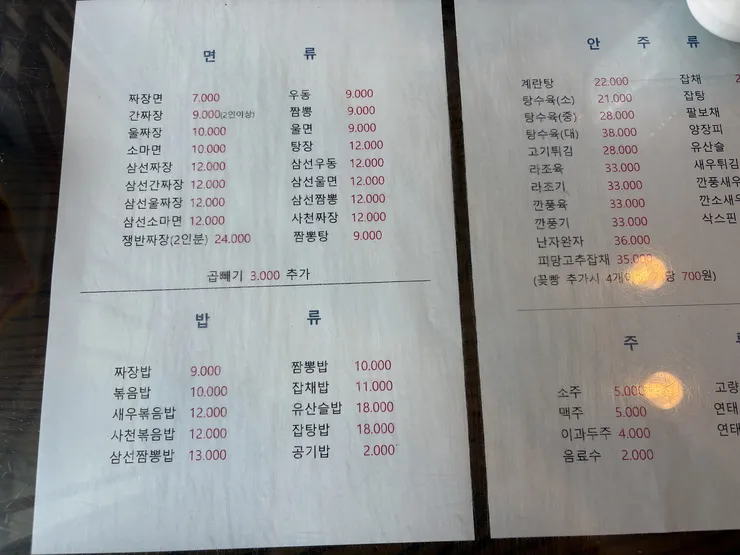 면 류
짜장면 7.000 우동 9.000
간짜장 9.000(2인이상) 짬뽕 9.000
울짜장 10.000 울면 9.000
소마면 10.000 탕장 12.000
삼선짜장 12.000 삼선우동 12.000
삼선간짜장 12.000 삼선울면 12.000
삼선울짜장 12.000 삼선짬뽕 12.000
삼선소마면 12.000 사천짜장 12.000
쟁반짜장(2인분) 24.000 짬뽕탕 9.000
곱빼기 3.000 추가
밥 류
짜장밥 9.000 짬뽕밥 10.000
볶음밥 10.000 잡채밥 11.000
새우볶음밥 12.000 유산슬밥 18.000
사천볶음밥 12.000 잡탕밥 18.000
삼선짬뽕밥 13.000 공기밥 2.000
안 주 류
계란탕 22.000 잡채
탕수육(소) 21.000 잡탕
탕수육(중) 28.000 팔보채
탕수육(대) 38.000 양장피
고기튀김 28.000 유산슬
라조육 33.000 새우튀김
라조기 33.000 깐풍새우
깐풍육 33.000 깐소새우
깐풍기 33.000 삭스핀
난자완자 36.000
피망고추잡채 35.000
(꽃빵 추가시 4개 당 700원)
주
소주 5.000 고량
맥주 5.000 연태
이과두주 4.000 연태
음료수 2.000